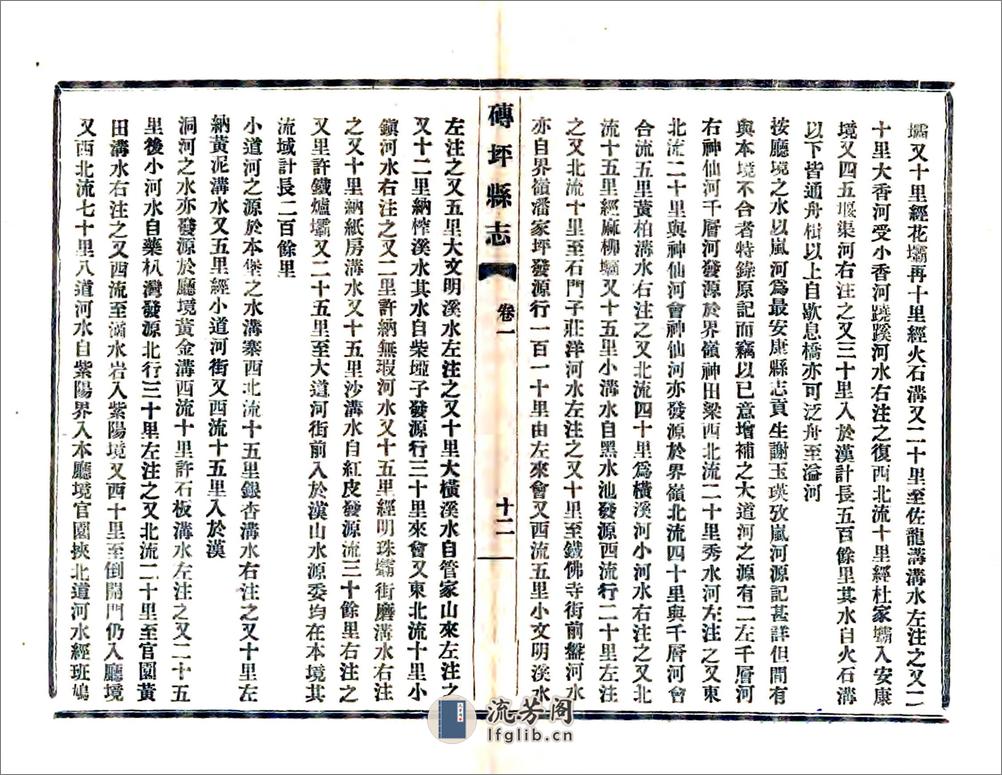 壩又十里經花壩再十里經火石溝又二十里至佐龍溝溝水左注之又二
十里大香河受小香河蹺蹊河水右注之復西北流十里經杜家壩入安康
境又四五堰渠河右注之又三十里入於漢計長五百餘里其水自火石溝
以下皆通舟楫以上自歇息橋亦可泛舟至溢河
按廳境之水以嵐河爲最安康縣志貢生謝玉瑛攷嵐河源記甚詳但間有
與本境不合者特錄原記而竊以已意增補之大道河之源有二左千層河
右神仙河千層河發源於界嶺神田梁西北流二十里秀水河左注之又東
北流二十里與神仙河會神仙河亦發源於界嶺北流四十里與千層河會
合流五里黃柏溝水右注之又北流四十里爲橫溪河小河水右注之又北
流十五里經麻柳壩又十五里小溝水自黑水池發源西流行二十里左注
之又北流十里至石門子莊洋河水左注之又十里至鐵佛寺街前盤河水
亦自界嶺潘家坪發源行一百一十里由左來會又西流五里小文明溪水
磚坪縣志
卷一
十二
左注之又五里大文明溪水左注之又十里大橫溪水自管家山來左注之
又十二里納榨溪水其水自柴埡子發源行三十里來會又東北流十里小
鎭河水右注之又二里許納無瑕河水又十五里經明珠壩街磨溝水右注
之又十里納紙房溝水又十五里沙溝水自紅皮發源流三十餘里右注之
又里許鐵爐壩又二十五里至大道河街前入於漢山水源委均在本境其
流域計長二百餘里
小道河之源於本堡之水溝寨西北流十五里銀杏溝水右注之又十里左
納黃泥溝水又五里經小道河街又西流十五里入於漢
洞河之水亦發源於廳境黃金溝西流十里許石板溝水左注之又二十五
里後小河水自藥杋灣發源北行三十里左注之又北流二十里至官園黃
田溝水右注之又西流至滴水岩入紫陽境又西十里至倒開門仍入廳境
又西北流七十里八道河水自紫陽界入本廳境官園挾北道河水經班鳩
流芳阁
lfglib.cn